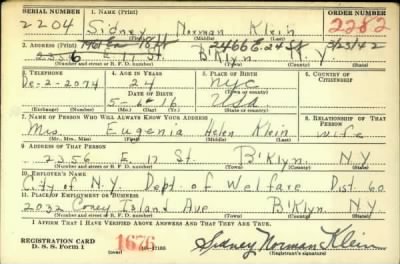 SERIAL NUMBER 1. NAME (Print) ORDER NUMBER
2204 Sidney Norman Klein 2282
(First) (Middle) (Last)
2. ADDRESS (Print) 2466 E. 24 St 3/25/42
2356 E. 17 St. B'Klyn N.Y
(Number and street or R. F. D. number) (Town) (County) (State)
3. TELEPHONE 4. AGE IN YEARS 5. PLACE OF BIRTH 6. COUNTRY OF CITIZENSHIP
De-2-2074 24 NYC
DATE OF BIRTH (Town or county)
5-6-16 USA
(Exchange) (Number) (Mo.) (Day) (Yr.) (State or country)
7. NAME OF PERSON WHO WILL ALWAYS KNOW YOUR ADDRESS 8. RELATIONSHIP OF THAT PERSON
Mrs. Eugenia Helen Klein wife
(Mr., Mrs., Miss) (First) (Middle) (Last)
9. ADDRESS OF THAT PERSON
2356 E. 17 St. B'Klyn. NY
(Number and street or R. F. D. number) (Town) (County) (State)
10. EMPLOYER'S NAME
City of N.Y. Dept. of Welfare Dist. 60
11. PLACE OF EMPLOYMENT OR BUSINESS
2032 Coney Island Ave B'Klyn. NY
(Number and street or R. F. D. number) (Town) (County) (State)
I AFFIRM THAT I HAVE VERIFIED ABOVE ANSWERS AND THAT THEY ARE TRUE.
REGISTRATION CARD
D. S. S. Form 1 1676 (over) Sidney Norman Klein
(Registrant's signature)